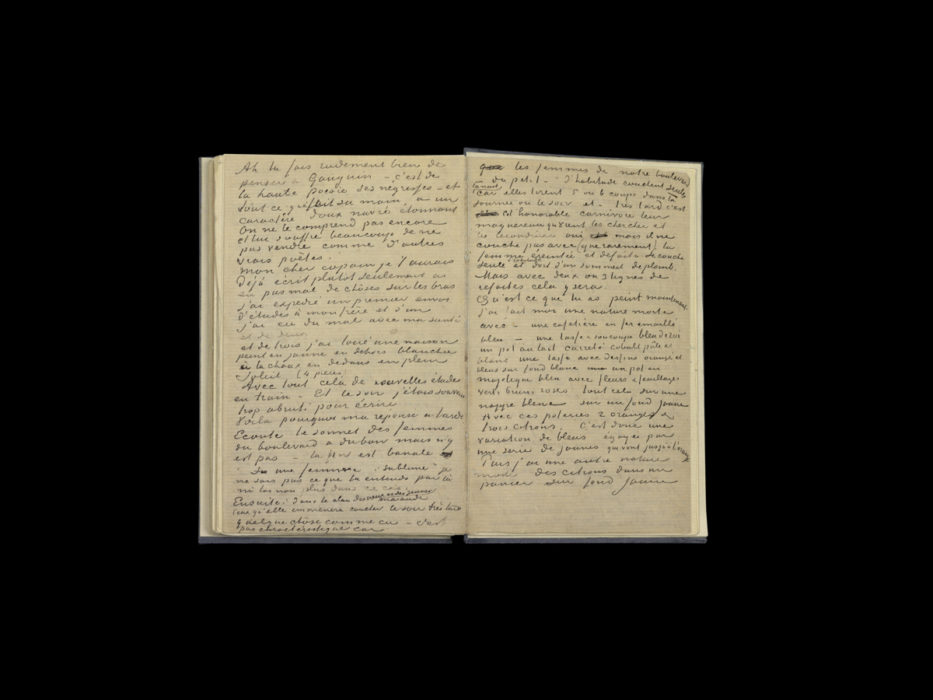 Ah tu fais rudement bien de
penser à Gauguin – c'est de
la haute poësie ses négresses – et
tout ce que fait sa main, a un
caractère doux navré étonnant
On ne le comprend pas encore
et lui souffre beaucoup de ne
pas vendre comme d'autres
vrais poëtes.
mon cher copain je t'aurais
Déjà écrit plutôt seulement as
eu pas mal de chôses sur les bras
j'ai expedié un premier envoi
d'études à mon frère et d'un
j'ai eu du mal avec ma santé
et de deux
et de trois j'ai loué une maison
peint en jaune en dehors blanchie
à la chaux en dedans en plein
soleil (4 pièces)
Avec tout cela de nouvelles études
en train – Et le soir j'étais souvent
trop abruti pour écrire.
Voilà pourquoi ma reponse a tardé
Ecoute le sonnet des femmes
du boulevard a du bon mais n'y
est pas – la fin est banale
une femme sublime je
ne sais pas ce que tu entends par là
ni toi non plus dans ce cas
Ensuite: Dans le clan des vieux et des jeunes maraude
ceux qu'elle emmenera coucher le soir très tard
quelque chose comme ca – c'est
pas characteristique car
les femmes de notre boulevard
– du petit – d'habitude couchent seules
la nuit
car elles tirent 5 ou 6 coups dans la
journée ou le soir et – très tard c'est
cet honorable carnivore leur
maquereau qui vient les chercher et
les reconduire oui mais il ne
couche pas avec (que rarement). la
femme éreintée et defaite se couche
seule et dort d'un sommeil de plomb.
Mais avec deux ou 3 lignes de
refaites cela y sera.
Qu'est ce que tu as peint maintenant.
j'ai fait moi une nature morte
avec – une cafetière en fer émaillé
bleu – une tasse & soucoupe bleu de roi
un pot au lait carrelé cobalt pâle et
blanc une tasse avec dessins orangés et
bleus sur fond blanc un pot en
majolique bleu avec fleurs & feuillages
verts bruns roses Tout cela sur une
nappe bleue sur un fond jaune
Avec ces poteries 2 oranges &
trois citrons. C'est donc une
variation de bleus egayée par
une serie de jaunes qui vont jusqu'à l'orangé
Puis j'ai une autre nature
morte des citrons dans un
panier sur fond jaune